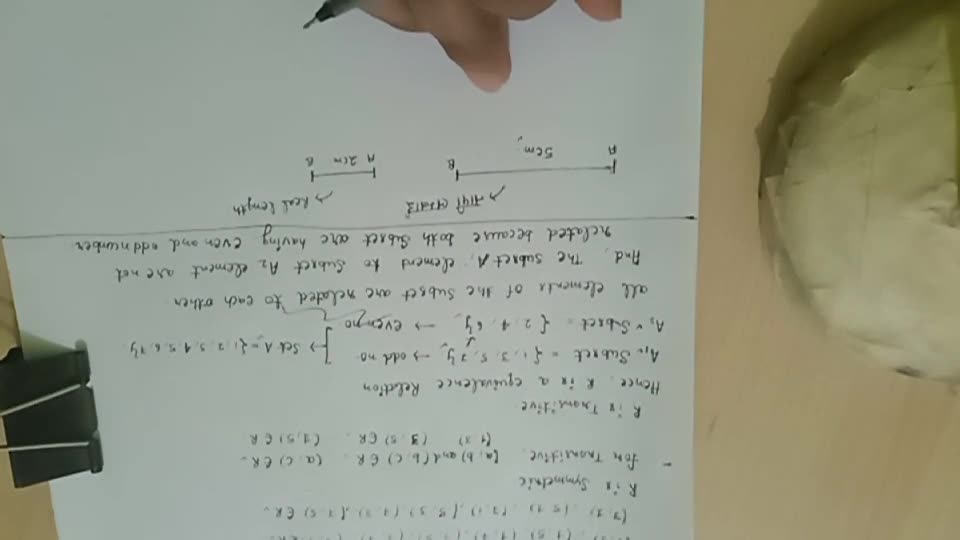 R is Symmetric
- for Transitive. (a,b) and (b,c) ∈ R. (a,c) ∈ R
(1,3) (3,5) ∈ R. (1,5) ∈ R
R is Transitive
Hence, R is a equivalence Relation
A₁, Subset = {1,3,5,7} → odd no. → Set A = {1,2,3,4,5,6,7}
A₂, Subset = {2,4,6} → even no
all elements of the subset are related to each other.
And, The subset A₁ element to subset A₂ element are not
related because both subset are having even and odd number.
→ Real length
A 5cm B
A 2cm B